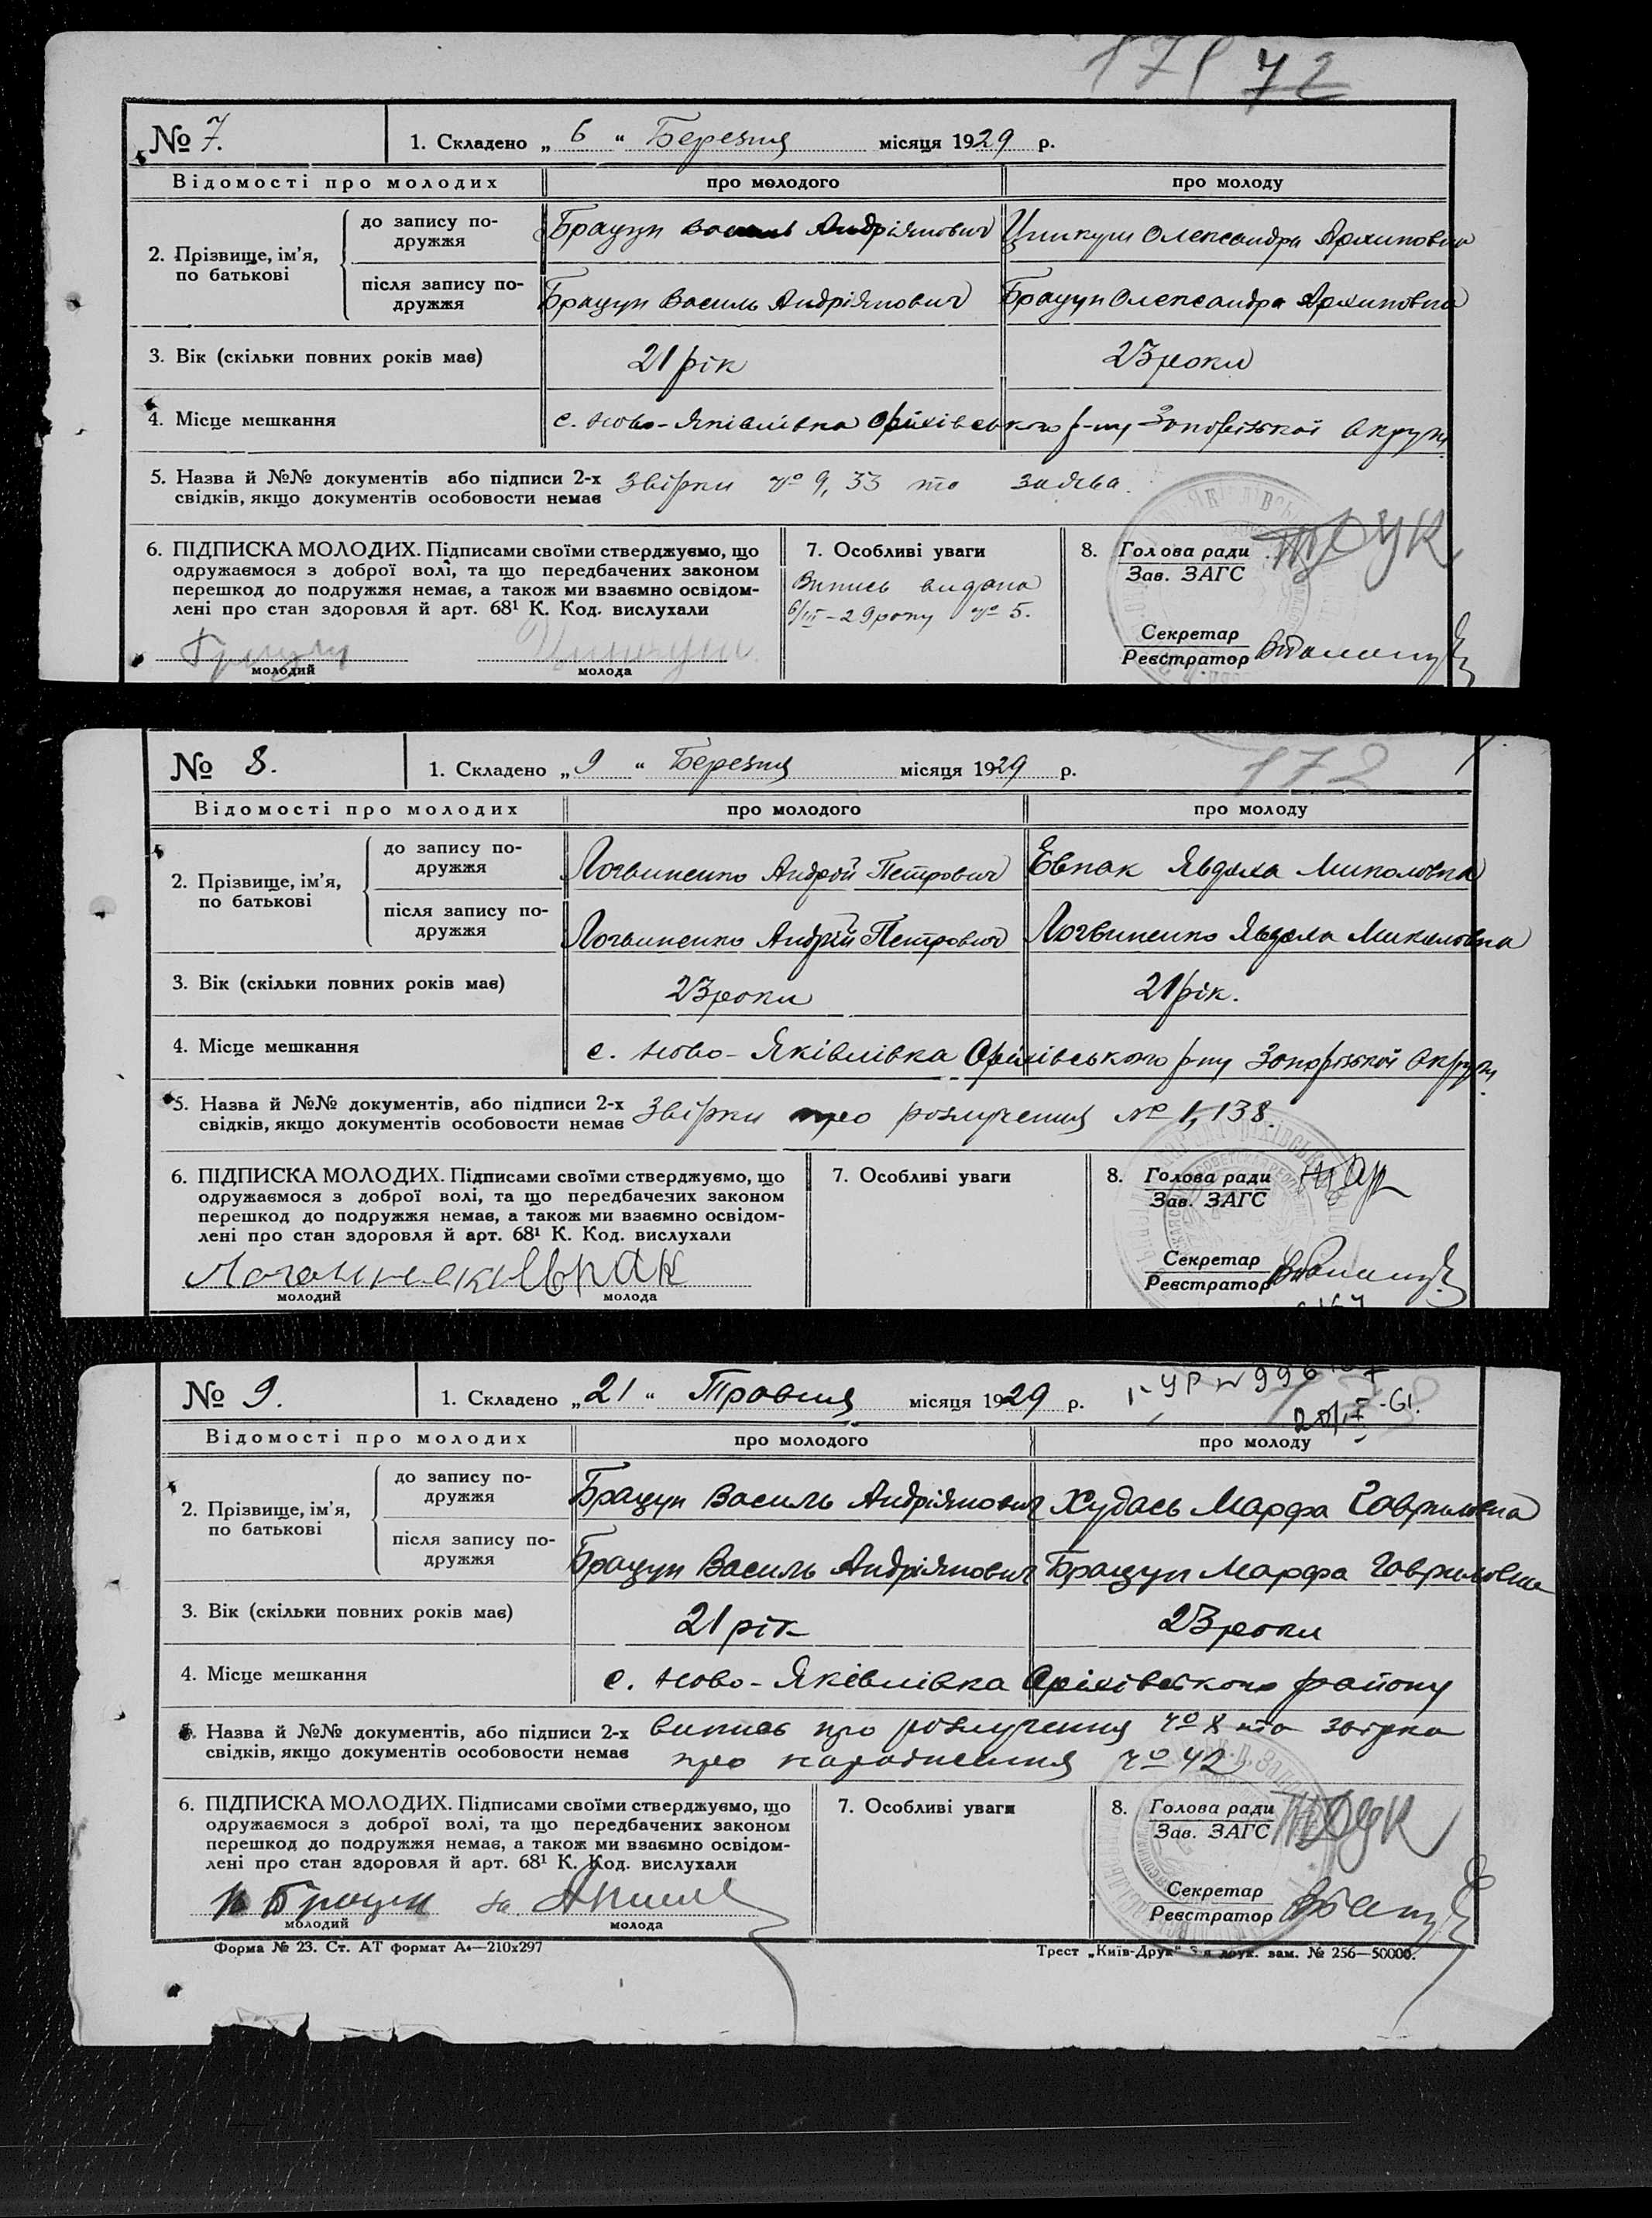 171 72
№ 7. 1. Складено „ 6 “ Березня місяця 1929 р.
Відомості про молодих про молодого про молоду
2. Прізвище, ім’я, по батькові
до запису по-
дружжя
Брацун Василь Андріянович Цинкуш Олександра Архиповна
після запису по-
дружжя
Брацун Василь Андріянович Брацун Олександра Архиповна
3. Вік (скільки повних років має) 21 рік 23 роки
4. Місце мешкання с. Ново-Яківлівка Оріхівського р-ну Запорізької Округи
5. Назва й №№ документів або підписи 2-х
свідків, якщо документів особовости немає
Звірки № 9, 33 та заява.
6. ПІДПИСКА МОЛОДИХ. Підписами своїми стверджуємо, що
одружаємося з доброї волі, та що передбачених законом
перешкод до подружжя немає, а також ми взаємно освідом-
лені про стан здоровля й арт. 68¹ К. Код. вислухали
Брацун
молодий молода
7. Особливі уваги
Випись видана
6/III-29 року № 5.
8. Голова ради
Зав. ЗАГС
Секретар
Реєстратор
№ 8. 1. Складено „ 9 “ Березня місяця 1929 р.
172
Відомості про молодих про молодого про молоду
2. Прізвище, ім’я,
по батькові
до запису по-
дружжя
Логвиненко Андрій Петрович Євпак Явдоха Миколовна
після запису по-
дружжя
Логвиненко Андрій Петрович Логвиненко Явдоха Миколовна
3. Вік (скільки повних років має) 23 роки 21 рік.
4. Місце мешкання с. Ново-Яківлівка Оріхівського р-ну Запорізької Округи
5. Назва й №№ документів, або підписи 2-х
свідків, якщо документів особовости немає
Звірки про розлучення № 1, 138.
6. ПІДПИСКА МОЛОДИХ. Підписами своїми стверджуємо, що
одружаємося з доброї волі, та що передбачених законом
перешкод до подружжя немає, а також ми взаємно освідом-
лені про стан здоровля й арт. 68¹ К. Код. вислухали
Евпак
молодий молода
7. Особливі уваги
8. Голова ради
Зав. ЗАГС
Секретар
Реєстратор
№ 9. 1. Складено „ 21 “ Травня місяця 1929 р.
Відомості про молодих про молодого про молоду
2. Прізвище, ім’я,
по батькові
до запису по-
дружжя
Брацун Василь Андріянович Худась Марфа Гавриловна
після запису по-
дружжя
Брацун Василь Андріянович Брацун Марфа Гавриловна
3. Вік (скільки повних років має) 21 рік 23 роки
4. Місце мешкання с. Ново-Яківлівка Оріхівського району
5. Назва й №№ документів, або підписи 2-х
свідків, якщо документів особовости немає
випись про розлучення № 8 та звірка
про народження № 42
6. ПІДПИСКА МОЛОДИХ. Підписами своїми стверджуємо, що
одружаємося з доброї волі, та що передбачених законом
перешкод до подружжя немає, а також ми взаємно освідом-
лені про стан здоровля й арт. 68¹ К. Код. вислухали
Брацун
молодий молода
7. Особливі уваги
8. Голова ради
Зав. ЗАГС
Секретар
Реєстратор
Форма № 23. Ст. АТ формат А₄—210х297
Трест „Київ-Друк“ 3-я друк. зам. № 256—50000.